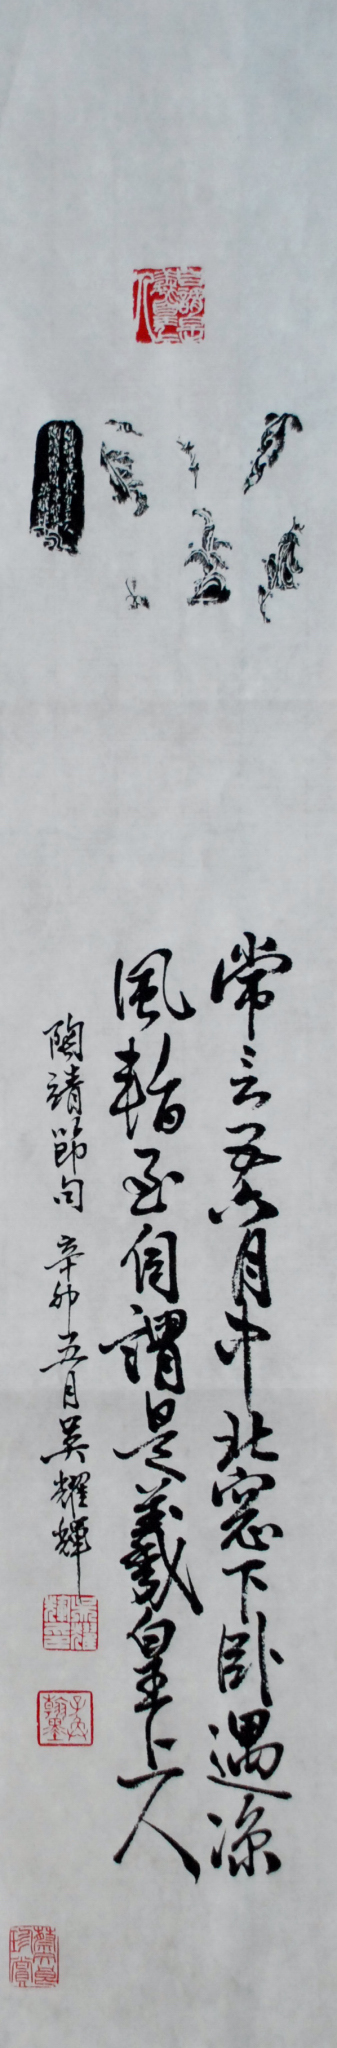 常言五六月中北窗下卧遇涼
風暫至自謂是羲皇上人
陶靖節句 辛卯五月吳耀輝